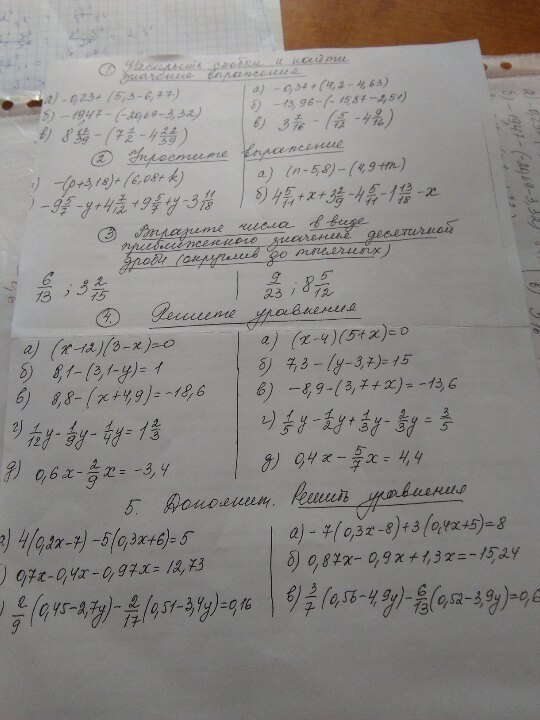 ① Раскрыть скобки и найти
значение выражения
а) -0,23+(5,3-6,77)
б) -19,47-(-20,69-3,32)
в) 8 17/39 - (7 1/2 - 4 22/39)
а) -0,37+(4,2-4,63)
б) -13,96-(-15,87-2,51)
в) 3 7/16 - (5/12 - 4 9/16)
② Упростите выражение
-(p+3,18)+(6,08+k)
-9 5/7 - y + 4 7/12 + 9 5/7 + y - 3 11/18
а) (n-5,8)-(4,9+m)
б) 4 5/11 + x + 3 2/9 - 4 5/11 - 1 13/18 - x
③ Выразите числа в виде
приближенного значения десятичной
дроби (округлив до тысячных)
6/13 ; 3 2/15
9/23 ; 8 5/12
4. Решите уравнения
а) (x-12)(3-x)=0
б) 8,1-(3,1-y)=1
в) 8,8-(x+4,9)=-18,6
г) 1/12 y - 1/9 y - 1/4 y = 1 2/3
д) 0,6x - 2/9 x = -3,4
а) (x-4)(5+x)=0
б) 7,3-(y-3,7)=15
в) -8,9-(3,7+x)=-13,6
г) 1/5 y - 1/2 y + 1/3 y - 2/3 y = 3/5
д) 0,4x - 5/7 x = 4,4
5. Дополнит. Решить уравнения
а) 4(0,2x-7)-5(0,3x+6)=5
) 0,7x-0,4x-0,97x=12,73
) 2/9 (0,45-2,7y) - 2/17 (0,51-3,4y)=0,16
а) -7(0,3x-8)+3(0,4x+5)=8
б) 0,87x-0,9x+1,3x=-15,24
в) 3/7 (0,56-4,9y) - 6/13 (0,52-3,9y)=0,6